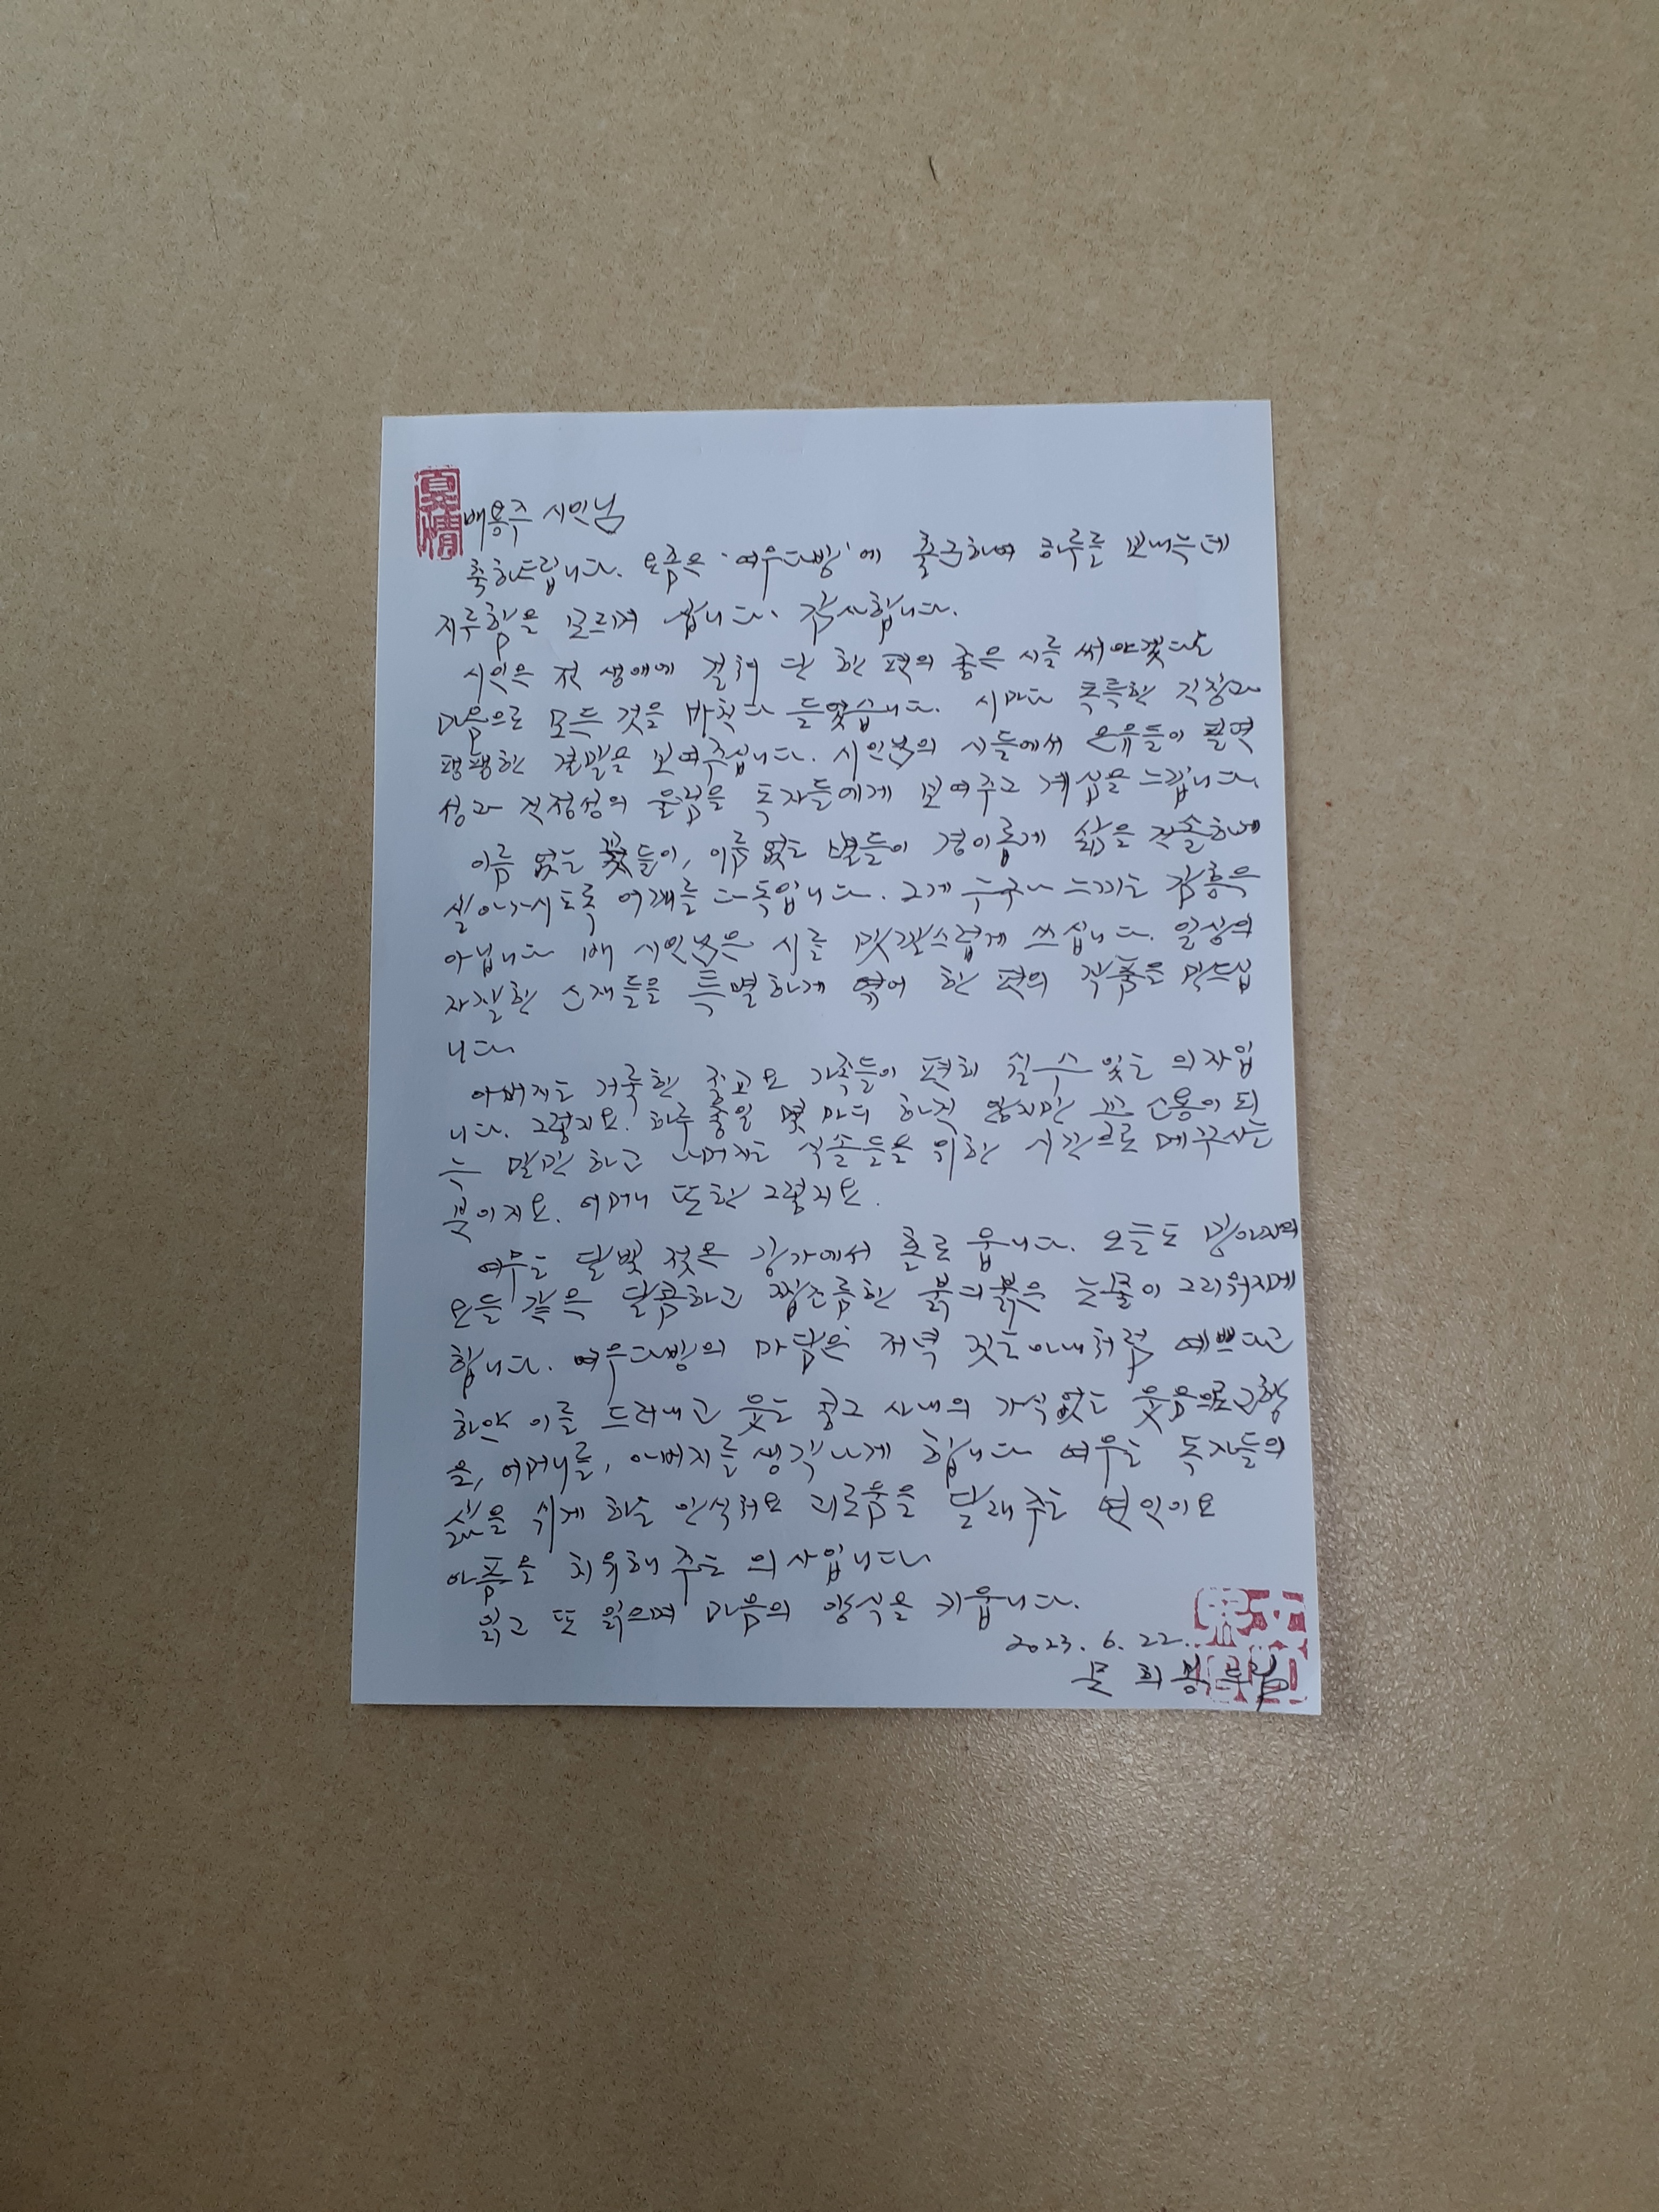 배용주 시인님
축하드립니다. 요즘은 '여우다방'에 출근하여 하루를 보내는데
지루함을 모르며 삽니다. 감사합니다.
시인은 전 생애에 걸쳐 단 한 편의 좋은 시를 써야겠다는
마음으로 모든 것을 바친다 들었습니다. 시마다 독특한 긴장과
팽팽한 결말을 보여주십니다. 시인님의 시들에서 은유들이 필연
성과 적정성의 울림을 독자들에게 보여주고 계심을 느낍니다.
이름 없는 꽃들이, 이름 없는 별들이 경이롭게 삶을
살아가시도록 어깨를 다독입니다. 그게 누구나 느끼는 감흥은
아닙니다 배 시인님은 시를 맛깔스럽게 쓰십니다. 일상의
자잘한 소재들을 특별하게 엮어 한 편의 작품을 만드십
니다
아버지는 거룩한 종교요 가족들이 편히 쉴 수 있는 의자입
니다. 그렇지요. 하루 종일 몇 마디 하진 않지만 꼭 소용이 되
는 말만 하고 나머지는 식솔들을 위한 시간으로 메꾸시는
분이지요. 어머니 또한 그렇지요.
여우는 달빛 젖은 강가에서 홀로 웁니다. 오늘도
달콤하고 짭조름한 붉디붉은 눈물이 그리워지게
합니다. 여우다방의 마담은 저녁 짓는 아내처럼 예쁘다고
하얀 이를 드러내고 웃는 콩고 사내의 가식없는 웃음으로 고향
을, 어머니를, 아버지를 생각나게 합니다 여우는 독자들의
삶을 쉬게 하는 안식처요 괴로움을 달래 주는 연인이요
아픔을 치유해 주는 의사입니다
읽고 또 읽으며 마음의 양식을 키웁니다.
2023. 6. 22.
문희봉 드림